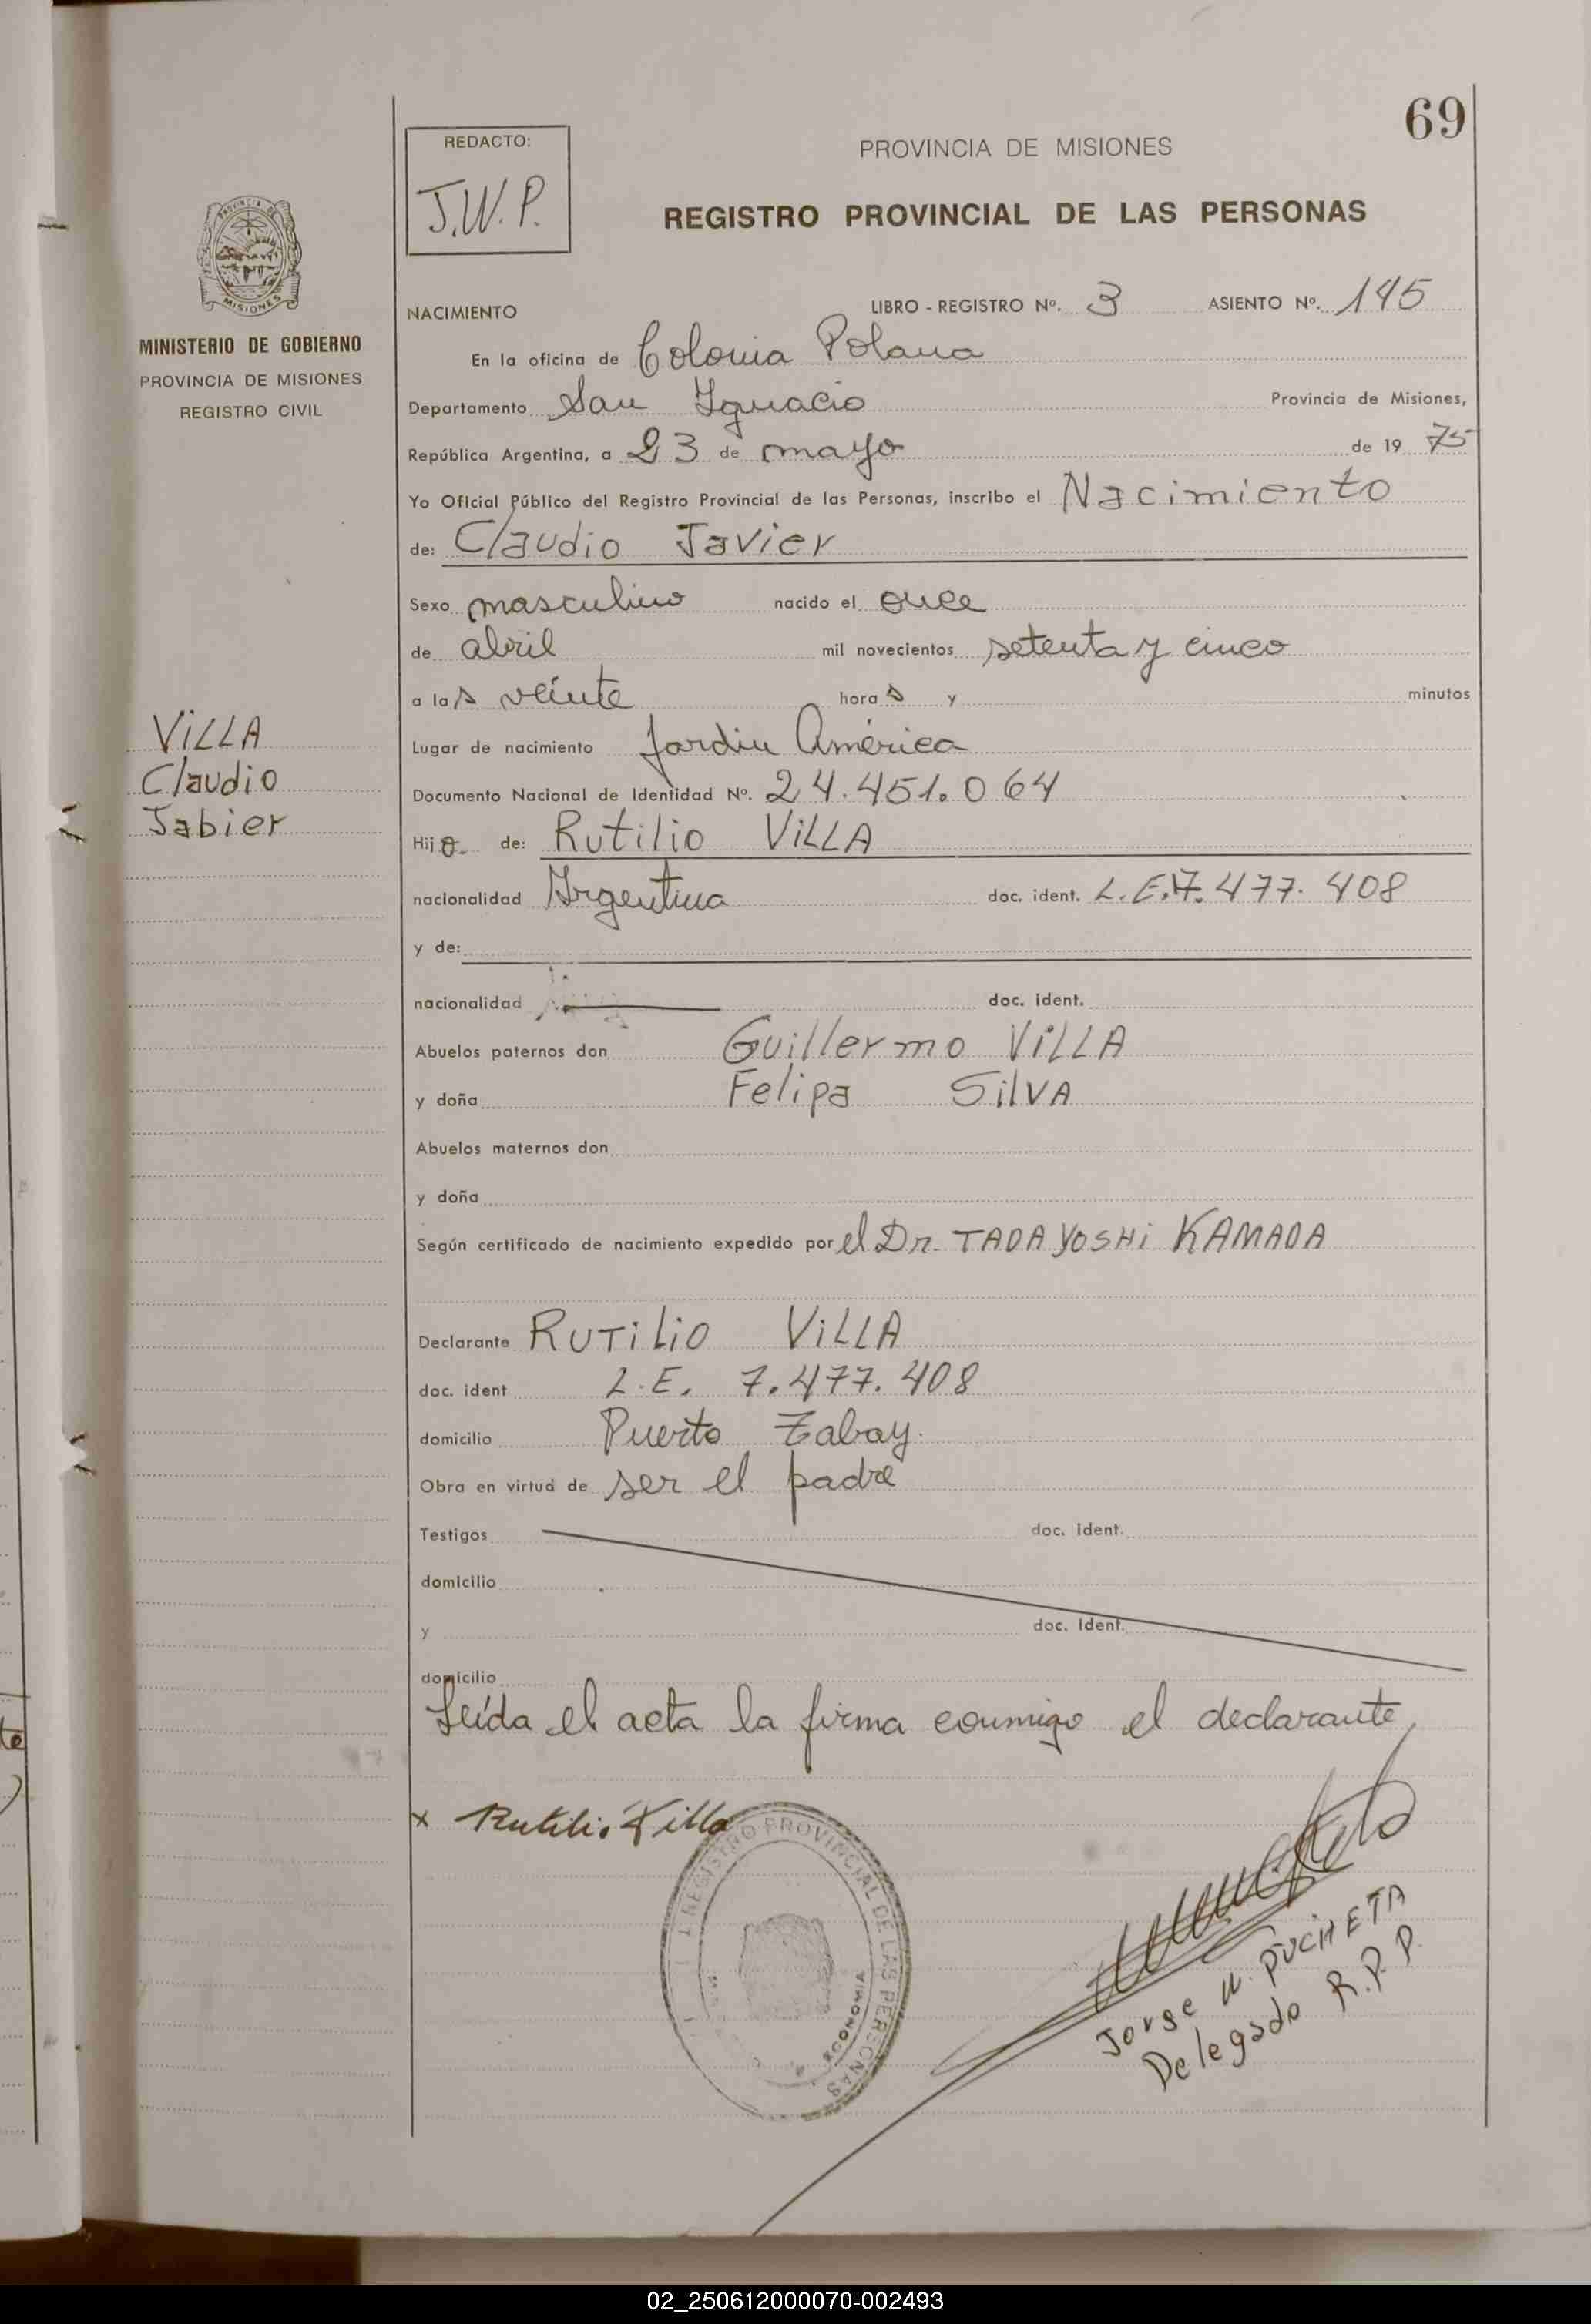 69
REDACTO:
J.W.P.
PROVINCIA DE MISIONES
REGISTRO PROVINCIAL DE LAS PERSONAS
PROVINCIA DE
MISIONES
MINISTERIO DE GOBIERNO
PROVINCIA DE MISIONES
REGISTRO CIVIL
VILLA
Claudio
Jabier
NACIMIENTO LIBRO - REGISTRO Nº. 3 ASIENTO Nº. 145
En la oficina de Colonia Polana
Departamento San Ignacio Provincia de Misiones,
República Argentina, a 23 de mayo de 19 75
Yo Oficial Público del Registro Provincial de las Personas, inscribo el Nacimiento
de: Claudio Javier
Sexo masculino nacido el once
de abril mil novecientos setenta y cinco
a las veinte horas y minutos
Lugar de nacimiento Jardin América
Documento Nacional de Identidad Nº. 24.451.064
Hijo de: Rutilio VILLA
nacionalidad Argentina doc. ident. L.E. 7.477.408
y de:
nacionalidad doc. ident.
Abuelos paternos don Guillermo VILLA
y doña Felipa SILVA
Abuelos maternos don
y doña
Según certificado de nacimiento expedido por el Dr. TADAYOSHI KAMADA
Declarante RUTILIO VILLA
doc. ident L.E. 7.477.408
domicilio Puerto Tabay.
Obra en virtud de ser el padre
Testigos doc. ident.
domicilio
y doc. ident.
domicilio
Leída el acta la firma conmigo el declarante,
x Rutilio Villa
REGISTRO PROVINCIAL DE LAS PERSONAS
ECONOMIA
Jorge W. PUCHETA
Delegado R.P.P.
02_250612000070-002493